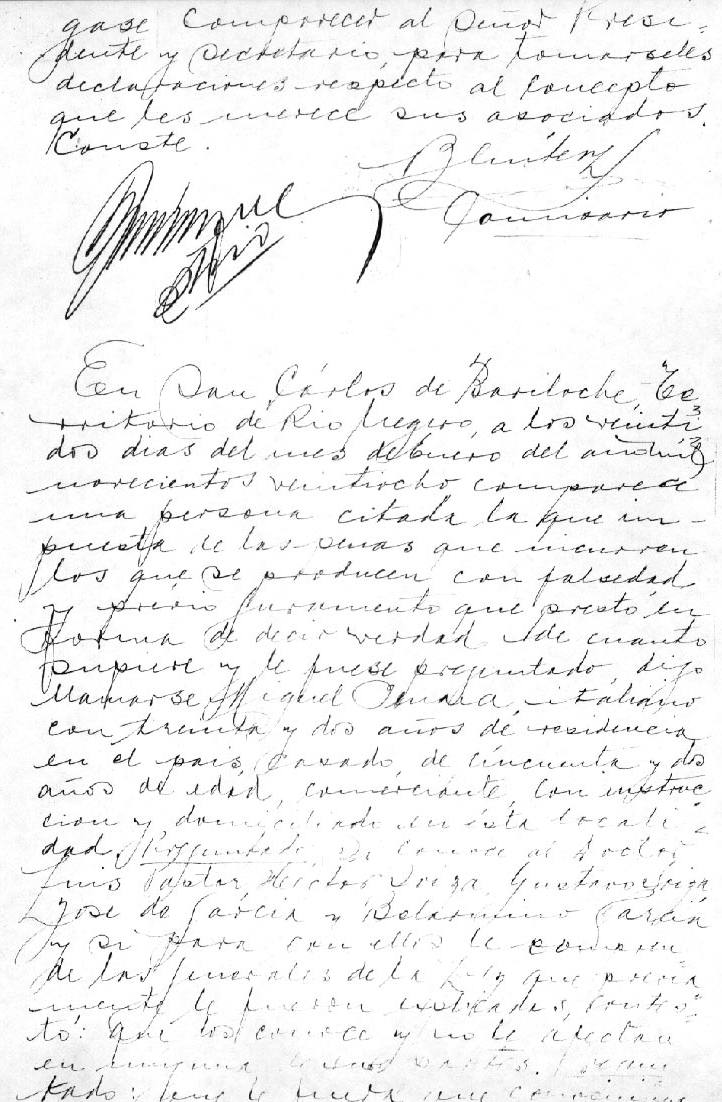 gase comparecer al Señor Presi-
dente y Secretario, para tomarseles
declaraciones respecto al concepto
que les merece sus asociados.
Conste.
Benitez
Comisario
En San Cárlos de Bariloche, Te-
rritorio de Rio Negro, a los veinti
dos dias del mes de Enero del año mil
novecientos veintiocho comparece
una persona citada la que im-
puesta de las penas que incurren
los que se producen con falsedad
y prévio juramento que prestó en
forma de decir verdad de cuanto
supiere y le fuese preguntado, dijo
llamarse Miguel italiano
con treinta y dos años de residencia
en el pais, casado, de cincuenta y dos
años de edad, comerciante, con instruc
cion y domiciliado en ésta locali-
dad. Preguntado, Si conoce al doctor
Luis Pastor, Hector Gustavo
José de García y Belarmino García
y si para con ellos le compren-
de las generales de la Ley que previa
mente le fueron explicadas, contes-
tó: que los conoce y no le afectan
en ninguna de sus partes. Pregun
tado: que le